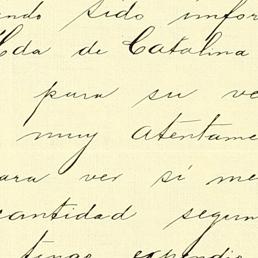 endo sido infor
Hda de Catalina
para su ve
muy atentame
para ver si me
cantidad segun
tinge expendie